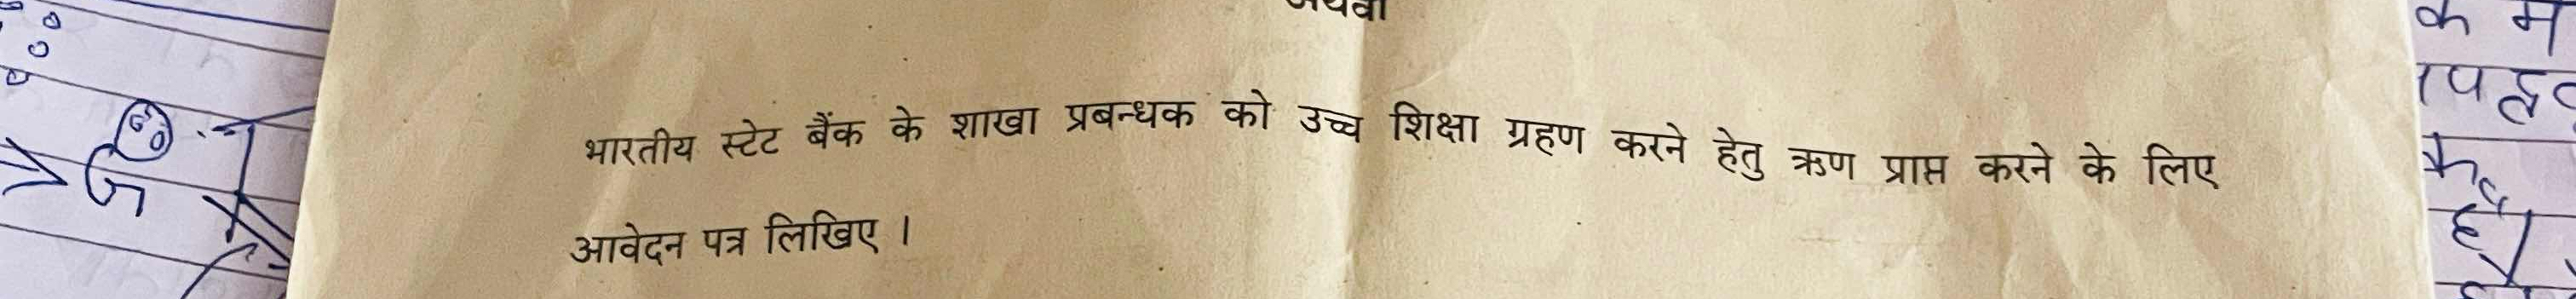 अथवा
भारतीय स्टेट बैंक के शाखा प्रबन्धक को उच्च शिक्षा ग्रहण करने हेतु ऋण प्राप्त करने के लिए
आवेदन पत्र लिखिए ।
क म
है।